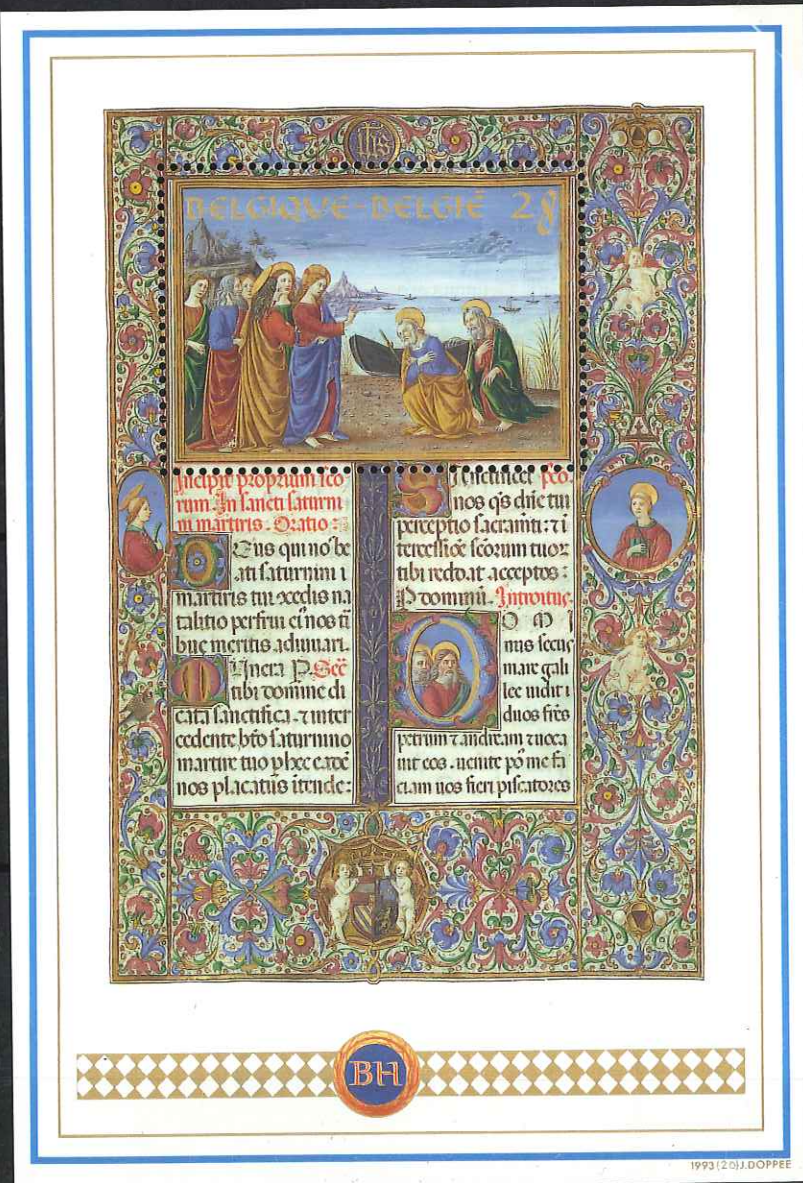 ihs
BELGIQUE-BELGIË 28
Incipit proprium sco
rum. In sancti saturni
ni martiris. Oratio:
DEus qui nos be
ati saturnini
martiris tui concedis na
talitio perfrui
bue meritis adiuuari.
Munera
tibi domine di
cata sanctifica. et inter
cedente bto saturnino
martire tuo
nos placatus itende:
nos qs dne tui
perceptio sacramti: et i
tercessioe scorum tuor
tibi reddat acceptos:
P dominum. Introitus
DO M I
nus secus
mare gali
lee uidit i
duos fres
petrum et andream et uoca
uit eos. uenite po me fa
ciam uos fieri piscatores
BH
1993(20)J.DOPPEE